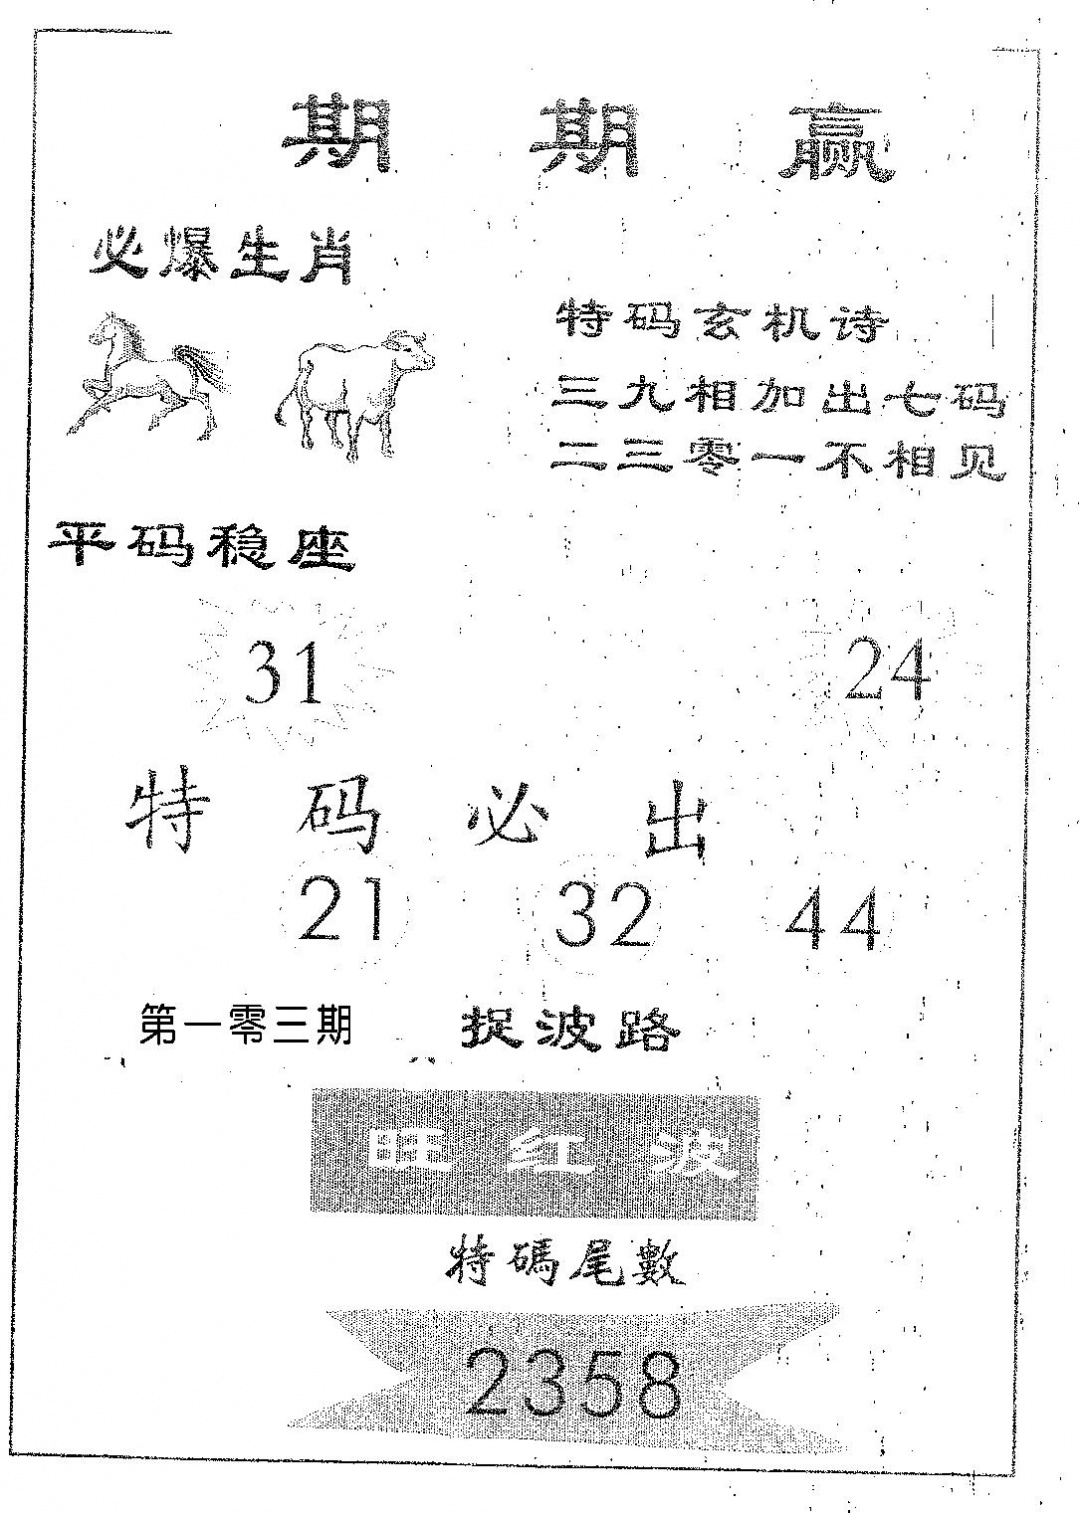 期期赢
必爆生肖
特码玄机诗
三九相加出七码
二三零一不相见
平码稳座
31 24
特码必出
21 32 44
第一零三期 捉波路
旺红波
特碼尾數
2358